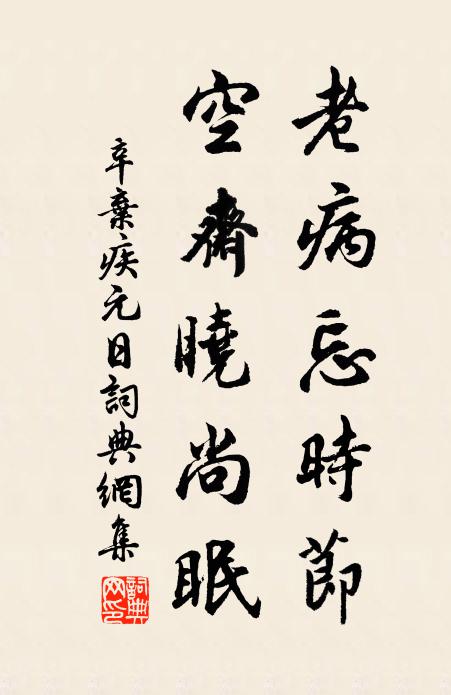 老病忘時節
空齋曉尚眠
辛棄疾元日詞典網集
詞典网印